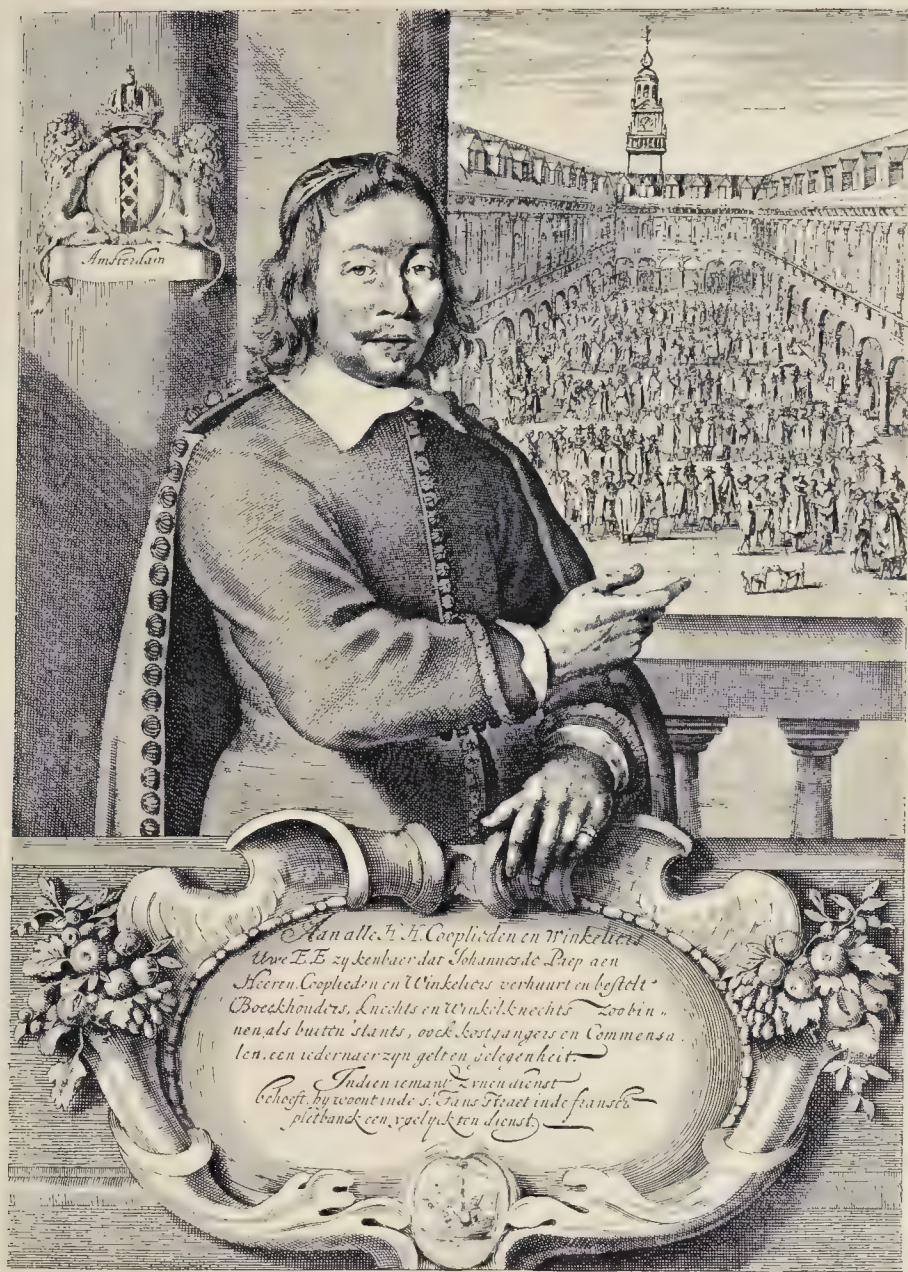 Amsterdam
Aan alle H H. Cooplieden en Winkeliers
Uwe E.E zy kenbaer dat Johannes de Piep aen
Heeren Cooplieden en Winkeliers verhuurt en bestelt
Boeckhouders, knechts en Winkel.knechts zoo bin„
nen als buiten slants, oock kostgangers en Commensa„
len, een iedernaer zyn gelt en gelegenheit.
Indien iemant zynen dienst
behoeft, hy woont inde s.t Jans straet inde fransche
pletbanck een ygelyck ten dienst.